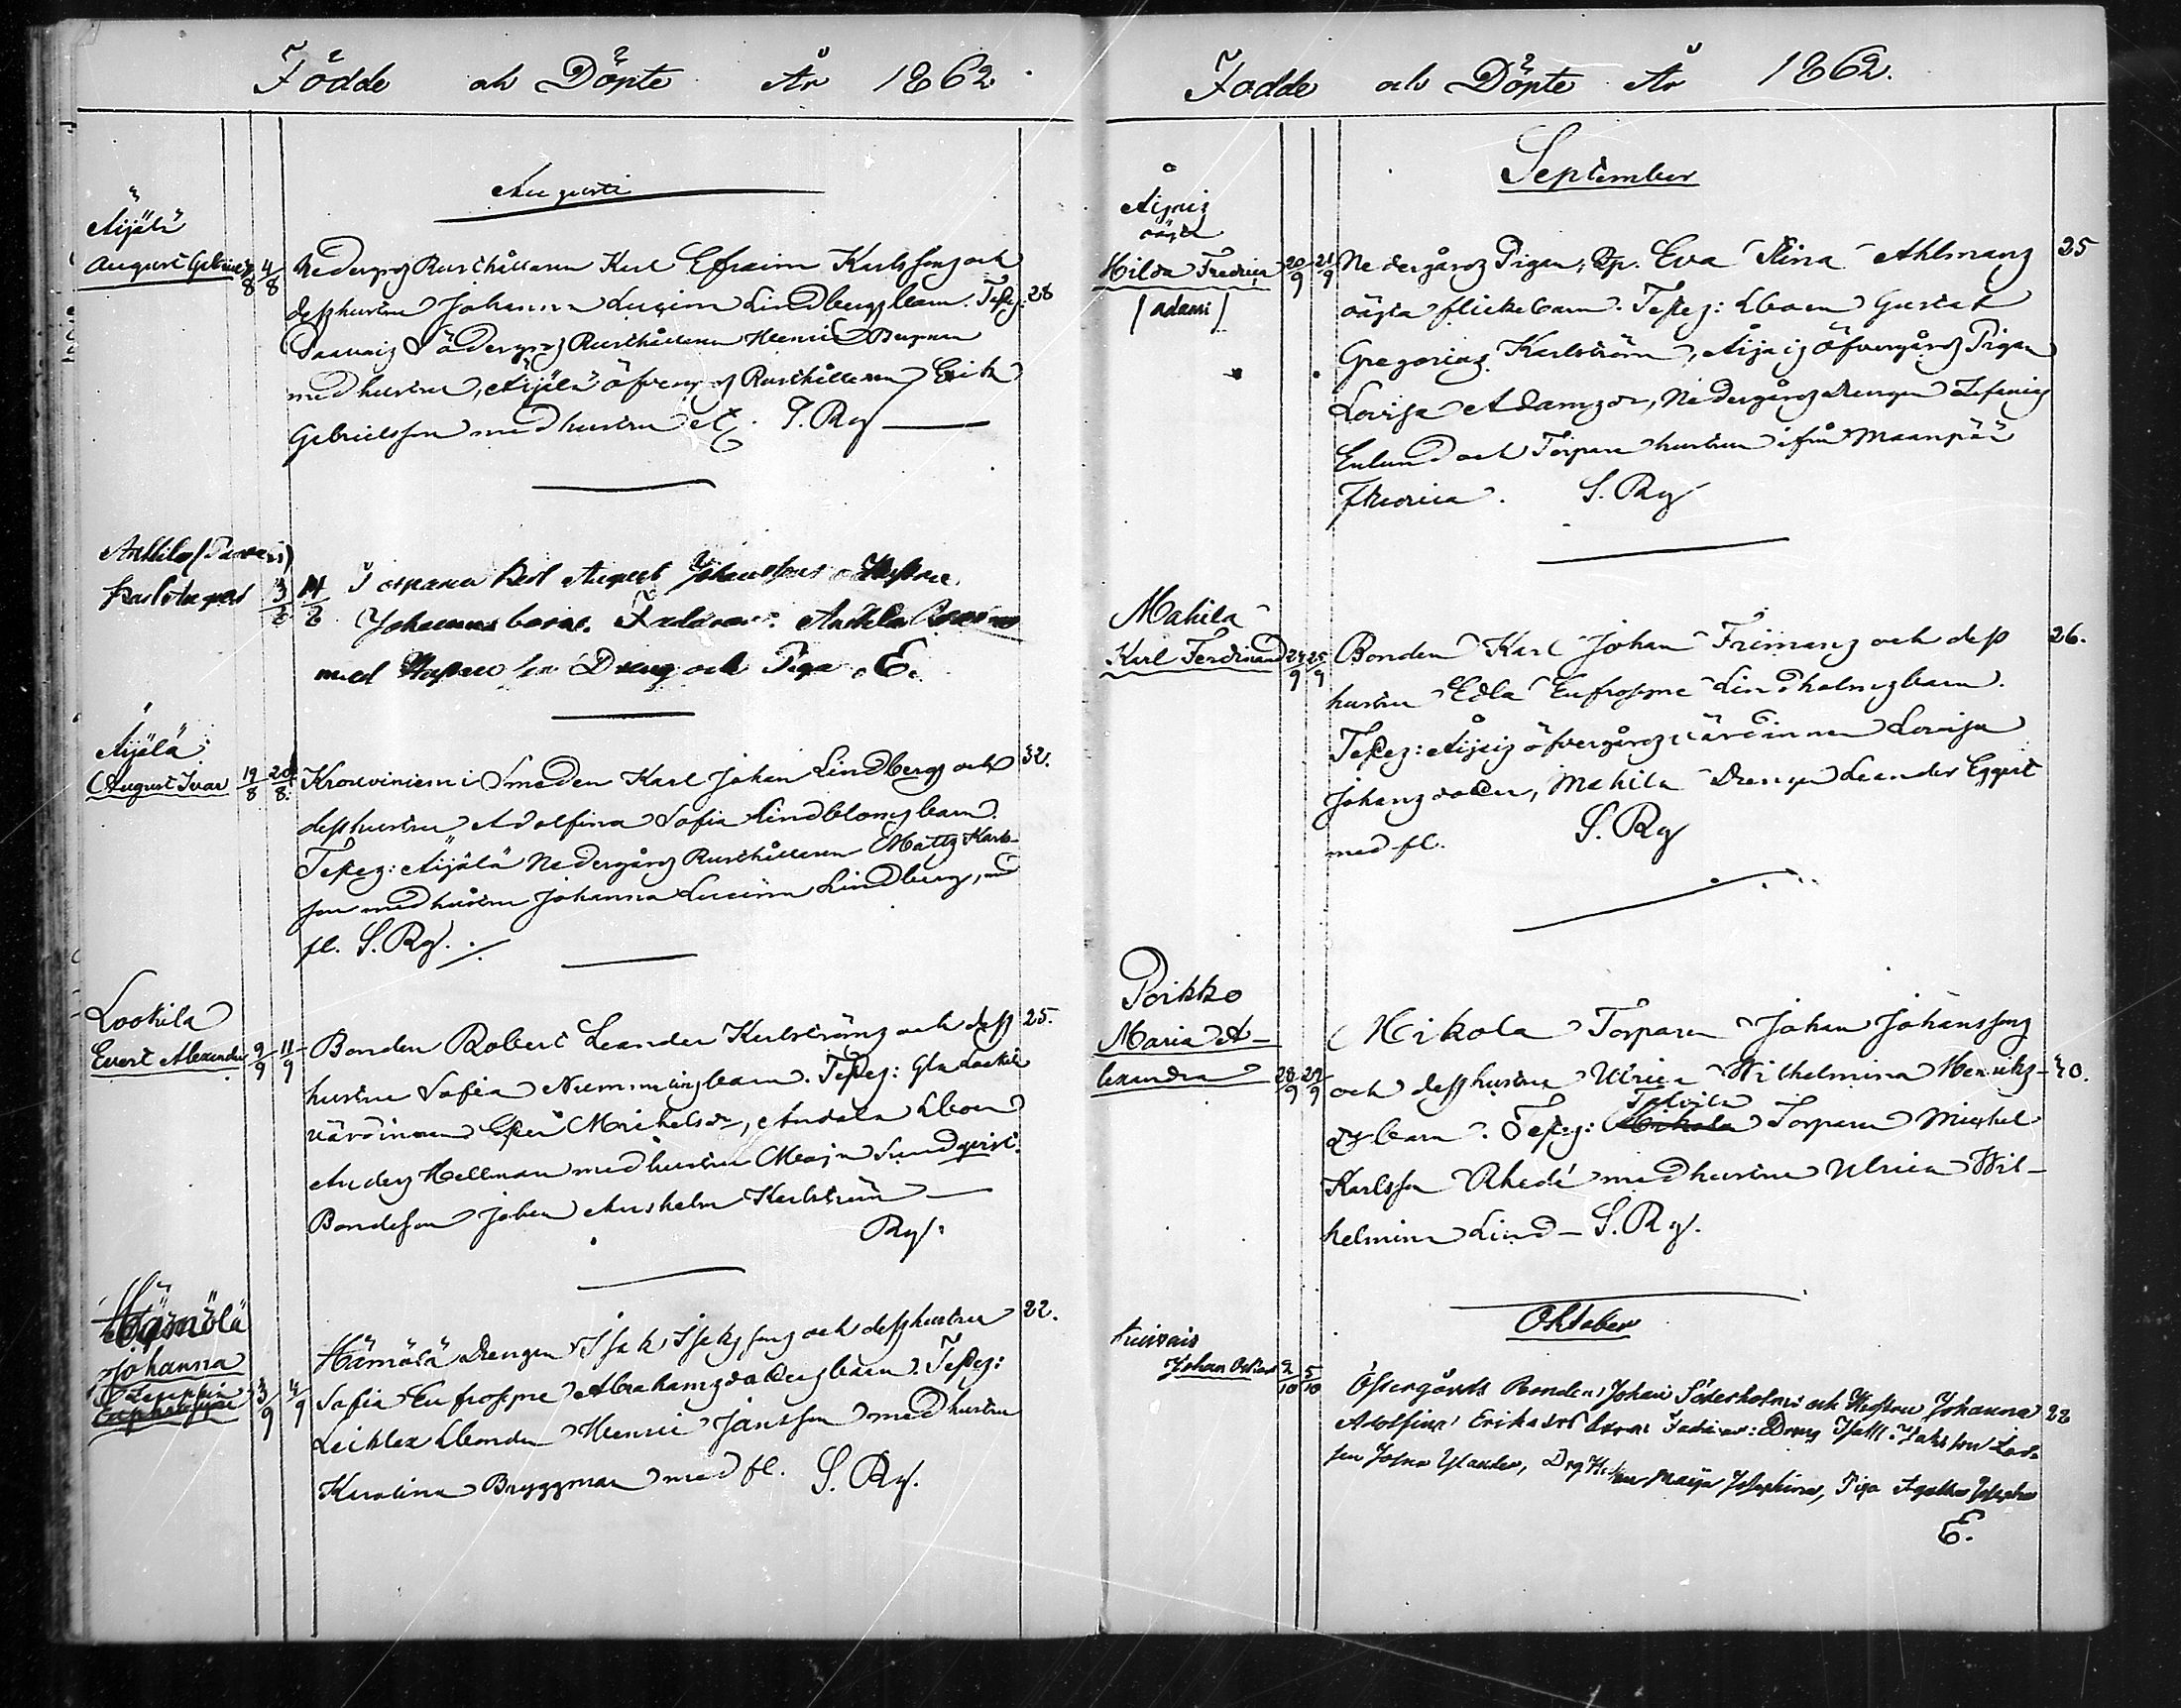 Födde och Döpte År 1862.
Augusti
Äijälä
August Gabriel 8 4/8 Nedergårds Rusthållaren Karl Efraim Karlssons och
dess hustru Johanna Lucina Lindbergs barn. Testes: 28
Södergårds Rusthållaren Henric Bergman
med hustru, Äijälä öfvergårds Rusthållaren Erik
Gabrielsson med hustru etc. S. Rg
Anttila
Karl August 3/8 Torparen Karl August Johanssons o Hustru
Johannas barn. Faddrar: Anttila
med Hustru Dreng och Piga. E.
Äijälä
August Ivar 19/8 20/8 Krouviniemi Smeden Karl Johan Lindbergs och 32.
dess hustru Adolfina Sofia Lindbloms barn.
Testes: Äijälä Nedergårds Rusthållaren Matts Karls-
son med hustru Johanna Lucina Lindberg, med
fl. S. Rg.
Lookila
Evert Alexander 9/9 11/9 Bonden Robert Leander Karlströms och dess 25.
hustru Sofia Nummelins barn. Testes: Gla
värdinnan Michelsdr, Åboen
Anders Hellman med hustru Maja Sundqvist.
Bondeson Johan Anshelm Karlström
Rg.
Hämölä
Johanna
Euphrosyne 3/9 4/9 Hämölä Drengen Isak Isaksons och dess hustru 22.
Sofia Eufrosyne Abrahamsdotters barn. Testes:
Bonden Henric Jansson med hustru
Karolina Bryggman med fl. S. Rg.
Födde och Döpte År 1862.
September
Äijäis
oägta
Hilda Fredrica 20/9 21/9 Nedergårds Pigan, Rp. Eva Stina Ahlmans 25
/ adami / oägta flickebarn. Testes: Åboen Gustaf
Gregorius Karlström, Äijäis öfvergårds Pigan
Lovisa Adamsdr, Nedergårds drengen Zefanias
Enlund och Torpare hustrun ifrån Maanpää
Fredrica. S. Rg
Mahila
Karl Ferdinand 24/9 25/9 Bonden Karl Johan Frimans och dess 26.
hustru Edla Eufrosyne Lindholms barn.
Testes: Äijäis öfvergårds värdinnan Lovisa
Johansdotter, Mahila Drengen Leander Eggert
med fl. S. Rg
Poikko
Maria A-
lexandra 28/9 29/9 Mikola Torparen Johan Johanssons
och dess hustru Ulrica Wilhelmina Henriks- 40.
drs barn. Testes: Mikola Torparen Michel
Karlsson Rhedé med hustru Ulrica Wil-
helmina Lind - S. Rg.
Oktober
Kuivais
Johan Oskar 2/10 5/10 Östergårds Bonden Johan Söderholms och Hustru Johanna 22
Adolfina Eriksdrs barn. Faddrar: Dreng
Ylander, Maija Josephina, Piga Agatha
E.